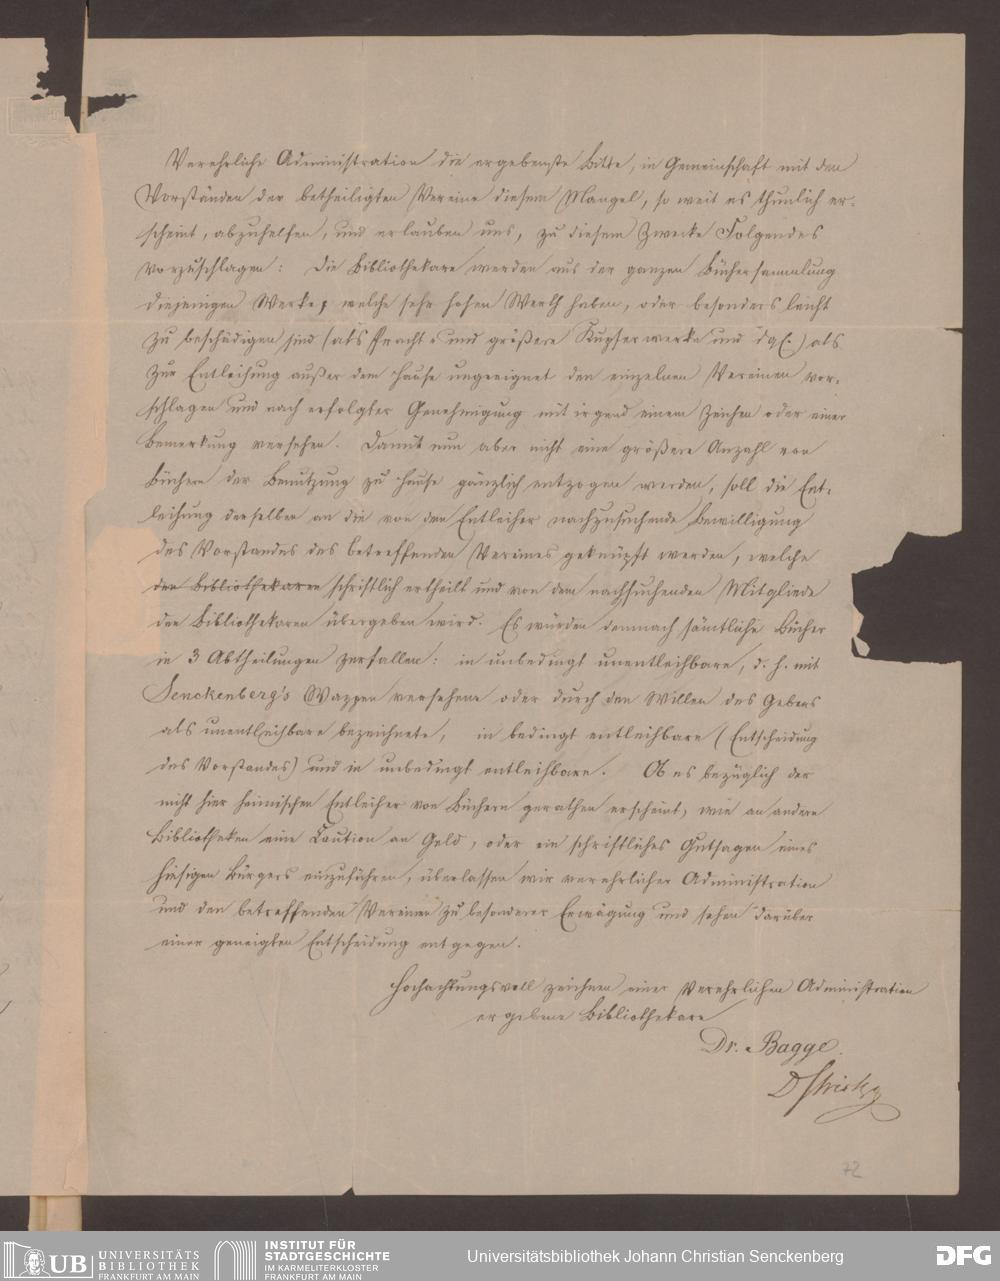 Verehrliche Administration die ergebenste Bitte, in Gemeinschaft mit den
Vorständen der betheiligten Vereine diesem Mangel, so weit es thunlich er-
scheint, abzuhelfen, und erlauben uns, zu diesem Zwecke Folgendes
vorzuschlagen: Die Bibliothekare werden aus der ganzen Büchersammlung
diejenigen Werke, welche sehr hohen Werth haben, oder besonders leicht
zu beschädigen sind (als Pracht- und größere Kupferwerke und dgl.) als
zur Entleihung außer dem Hause ungeeignet den einzelnen Vereinen vor-
schlagen und nach erfolgter Genehmigung mit irgend einem Zeichen oder einer
Bemerkung versehen. Damit nun aber nicht eine größere Anzahl von
Büchern der Benutzung zu Hause gänzlich entzogen werden, soll die Ent-
leihung derselben an die von den Entleiher nachzusuchende Bewilligung
des Vorstandes des betreffenden Vereines geknüpft werden, welche
den Bibliothekaren schriftlich ertheilt und von dem nachsuchenden Mitgliede
den Bibliothekaren übergeben wird. Es würden demnach sämtliche Bücher
in 3 Abtheilungen zerfallen: in unbedingt unentleihbare, d. h. mit
Senckenberg's Wappen versehene oder durch den Willen des Gebers
als unentleihbare bezeichnete, in bedingt entleihbare (Entscheidung
des Vorstandes) und in unbedingt entleihbare. Ob es bezüglich der
nicht hier heimischen Entleiher von Büchern gerathen erscheint, wie an andern
Bibliotheken eine Caution an Geld, oder ein schriftliches Gutsagen eines
hiesigen Bürgers einzuführen, überlassen wir verehrlicher Administration
und den betreffenden Vereinen zu besonderer Erwägung und sehen darüber
einer geneigten Entscheidung entgegen.
Hochachtungsvoll zeichnen einer Verehrlichen Administration
ergebene Bibliothekare
Dr. Bagge.
D Stricker
72
UB UNIVERSITÄTS
BIBLIOTHEK
FRANKFURT AM MAIN
INSTITUT FÜR
STADTGESCHICHTE
IM KARMELITERKLOSTER
FRANKFURT AM MAIN
Universitätsbibliothek Johann Christian Senckenberg
DFG